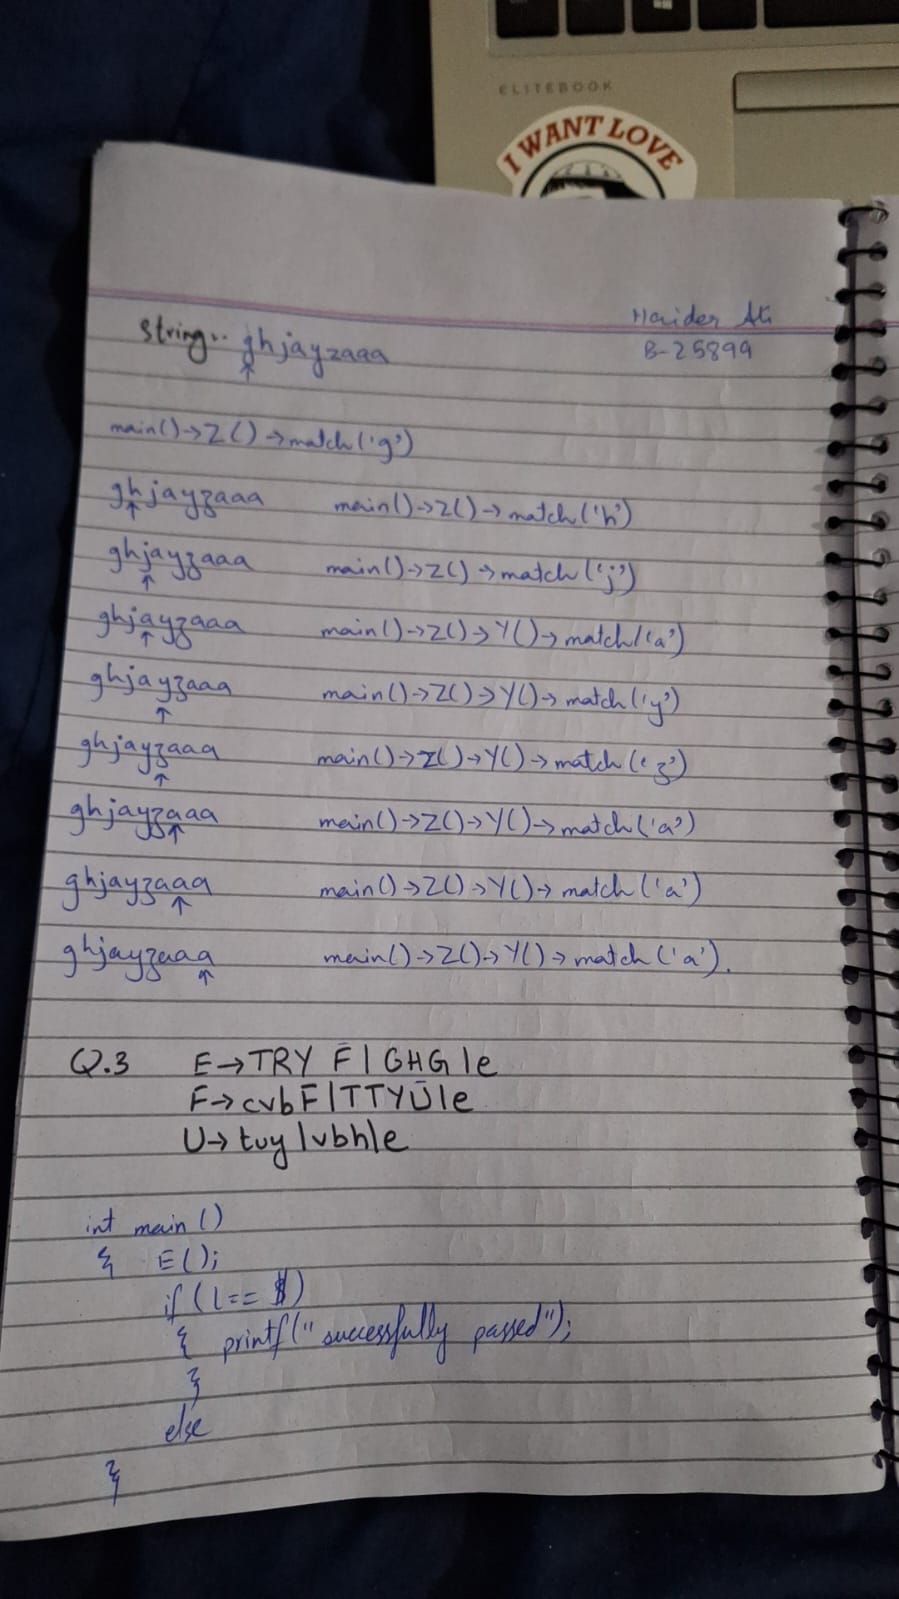 ELITEBOOK
I WANT LOVE
Haider Ali
B-25899
string.. ghjayzaaa
main()->Z()->match('g')
ghjayzaaa main()->Z()->match('h')
ghjayzaaa main()->Z()->match('j')
ghjayzaaa main()->Z()->Y()->match('a')
ghjayzaaa main()->Z()->Y()->match('y')
ghjayzaaa main()->Z()->Y()->match('z')
ghjayzaaa main()->Z()->Y()->match('a')
ghjayzaaa main()->Z()->Y()->match('a')
ghjayzaaa main()->Z()->Y()->match('a').
Q.3 E->TRY F|GHG|e
F->cvbF|TTYU|e
U->tuy|vbh|e
int main()
{ E();
if(l==$)
{ printf("successfully passed");
}
else
}